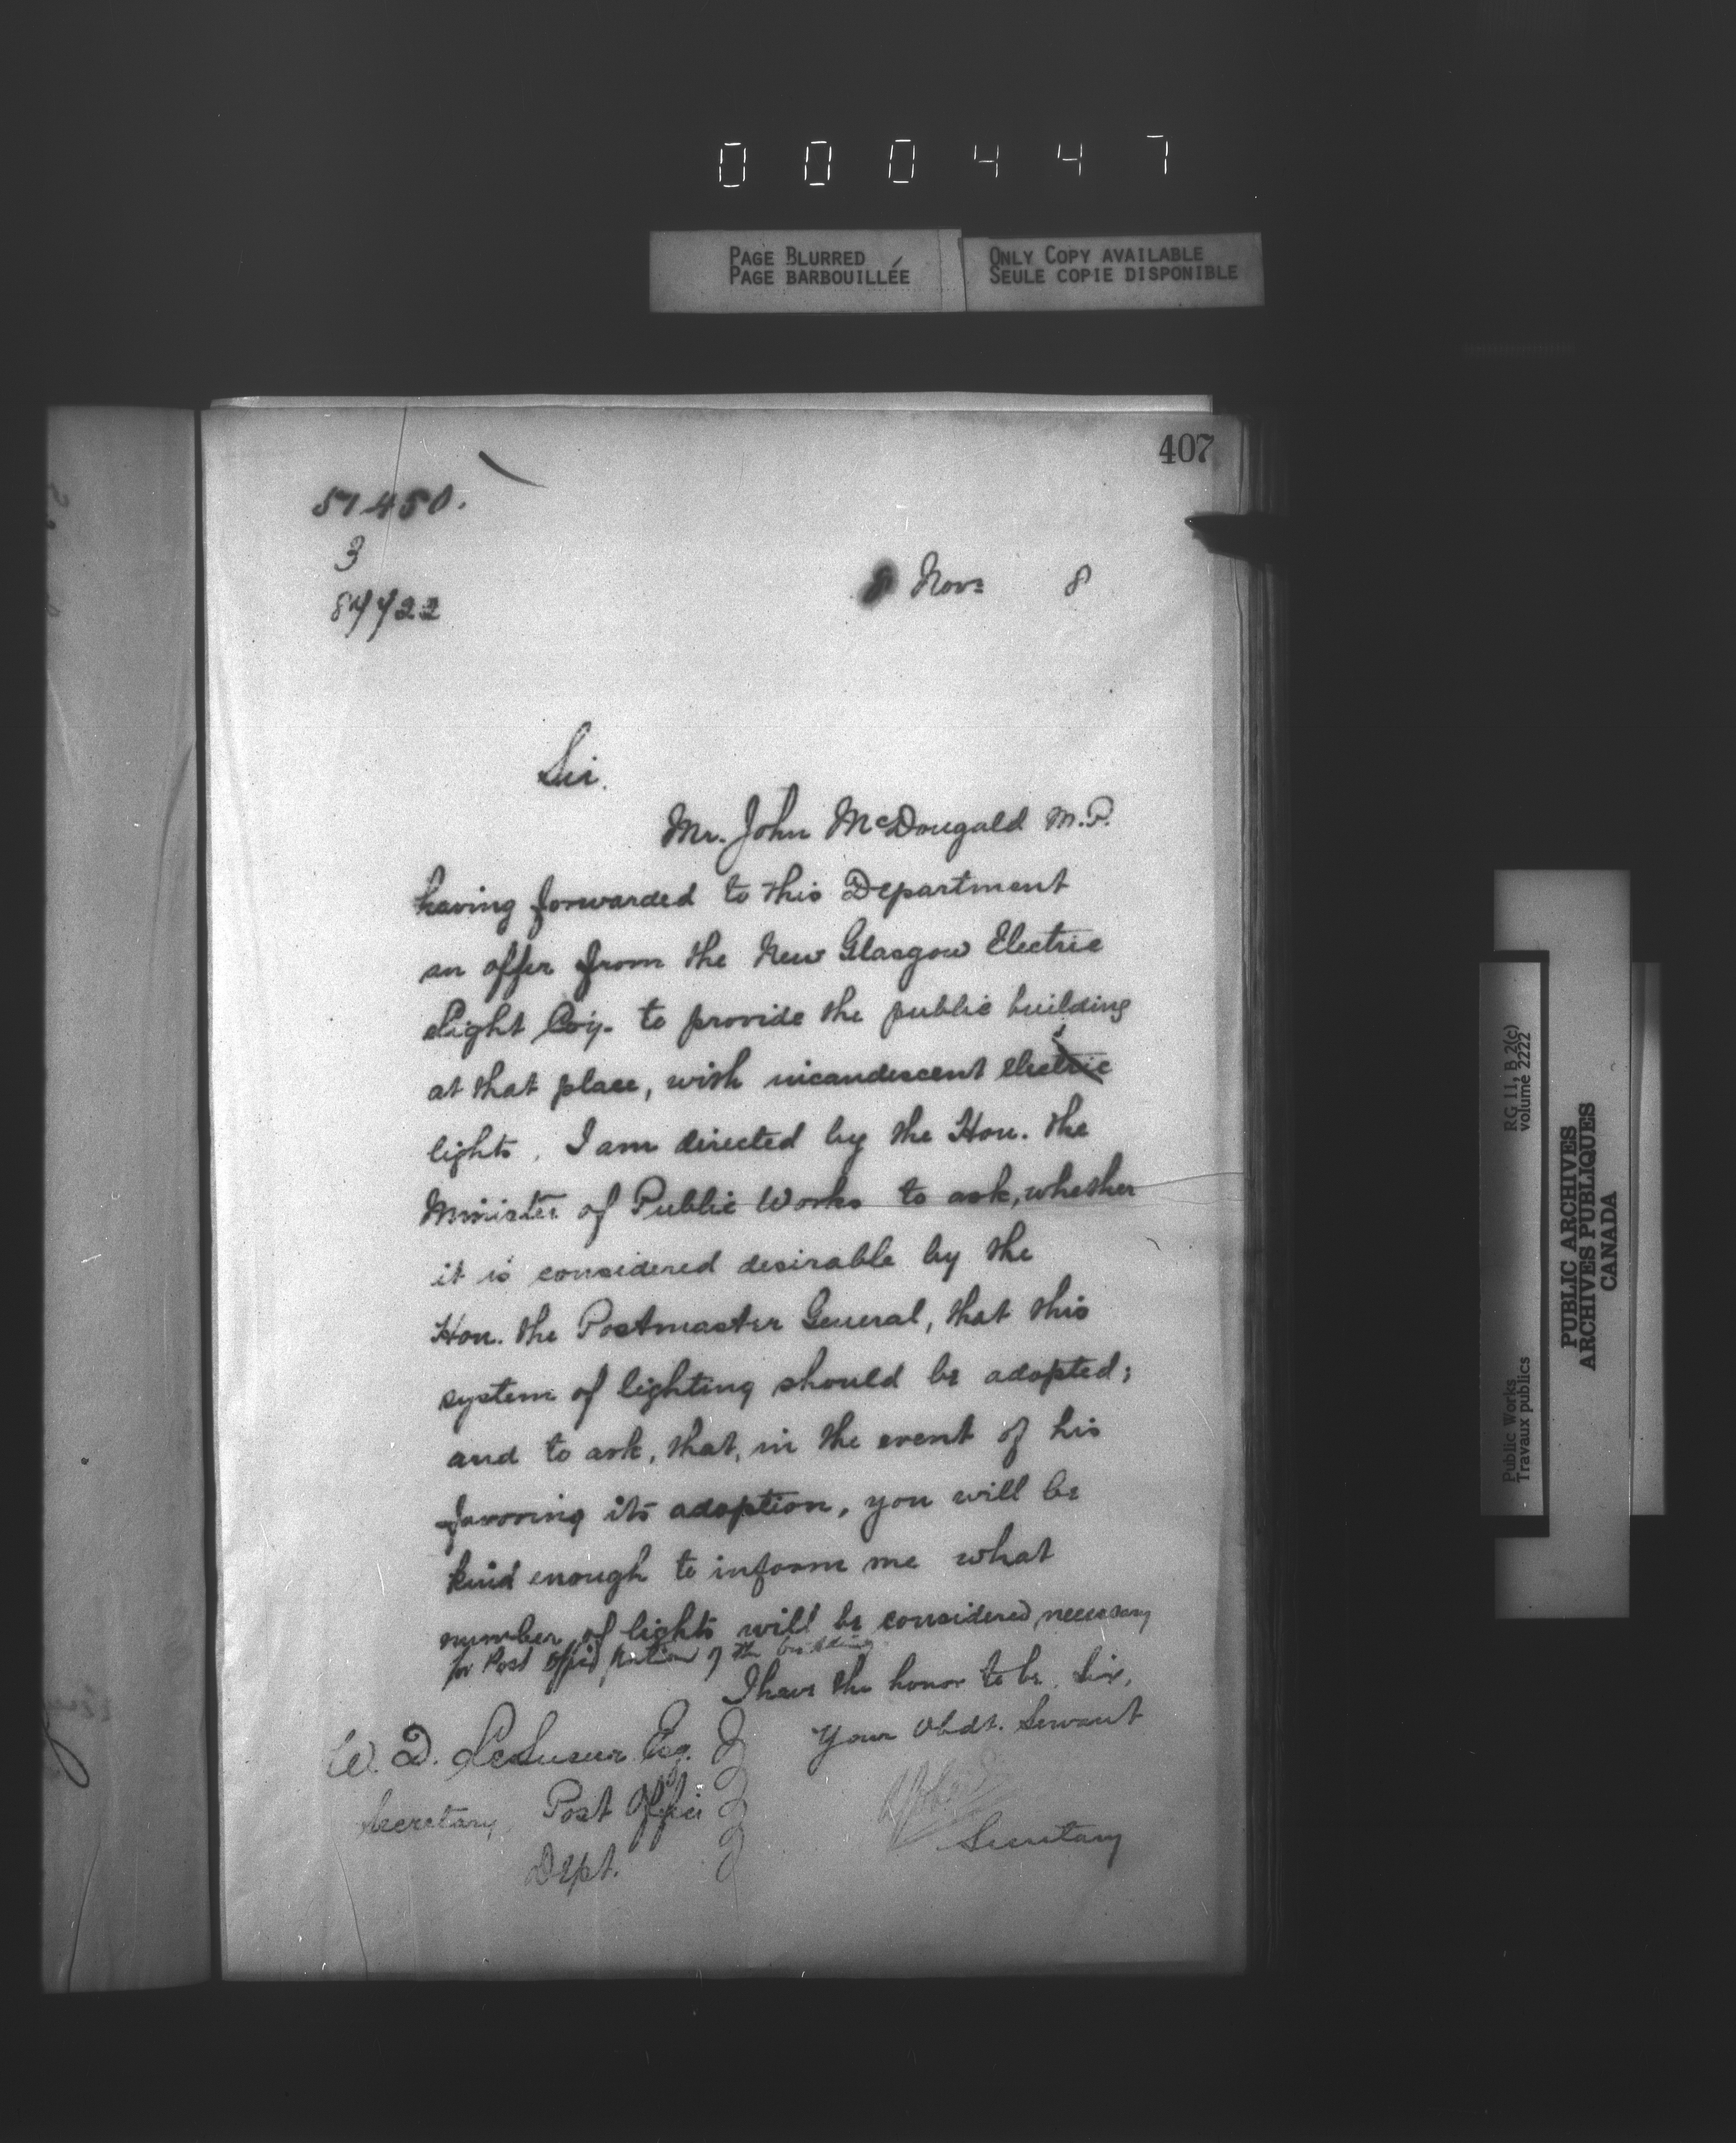 000447
PAGE BLURRED
PAGE BARBOUILLÉE
ONLY COPY AVAILABLE
SEULE COPIE DISPONIBLE
407
57450.
3
87722
8 Nov: 8
Sir.
Mr. John McDougald M.P.
having forwarded to this Department
an offer from the New Glasgow Electric
Light Coy. to provide the public building
at that place, with incandescent electric
lights, I am directed by the Hon. the
Minister of Public Works to ask, whether
it is considered desirable by the
Hon. the Postmaster General, that this
system of lighting should be adopted;
and to ask, that, in the event of his
favoring its adoption, you will be
kind enough to inform me what
number of lights will be considered necessary
for Post Office portion of the building
I have the honor to be, Sir,
Your Obdt. Servant
W. D. LeSueur Esq.
Secretary, Post Office
Dept.
Secretary
Public Works
Travaux publics
RG 11, B 2(c)
volume 2222
PUBLIC ARCHIVES
ARCHIVES PUBLIQUES
CANADA